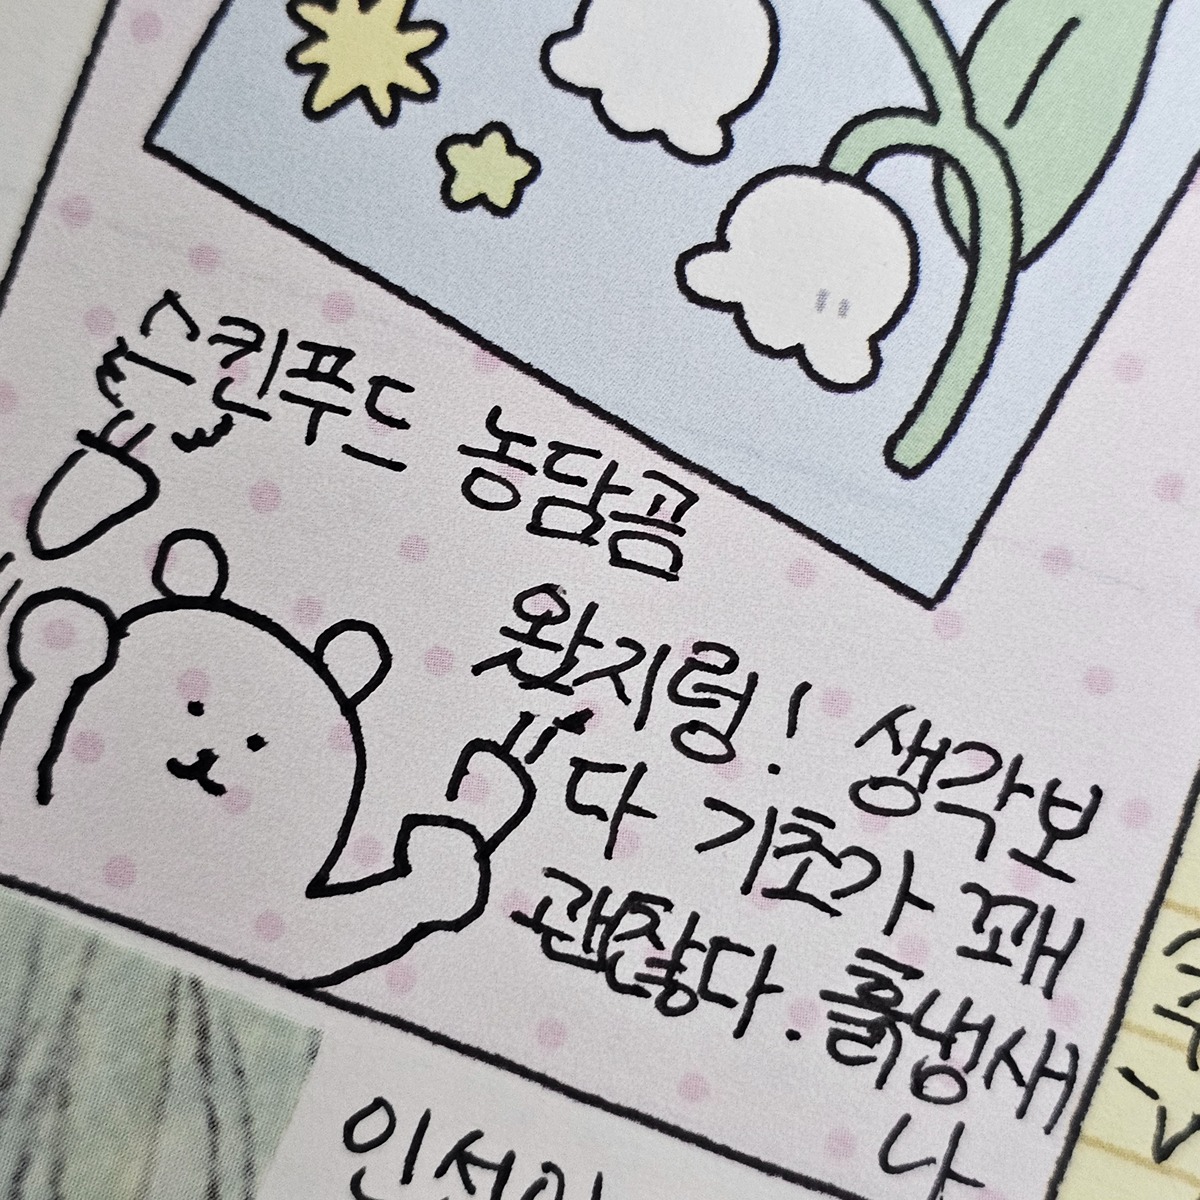 스킨푸드 농담곰
완지렁! 생각보
다 기초가 꽤
괜찮다. 흙냄새
나